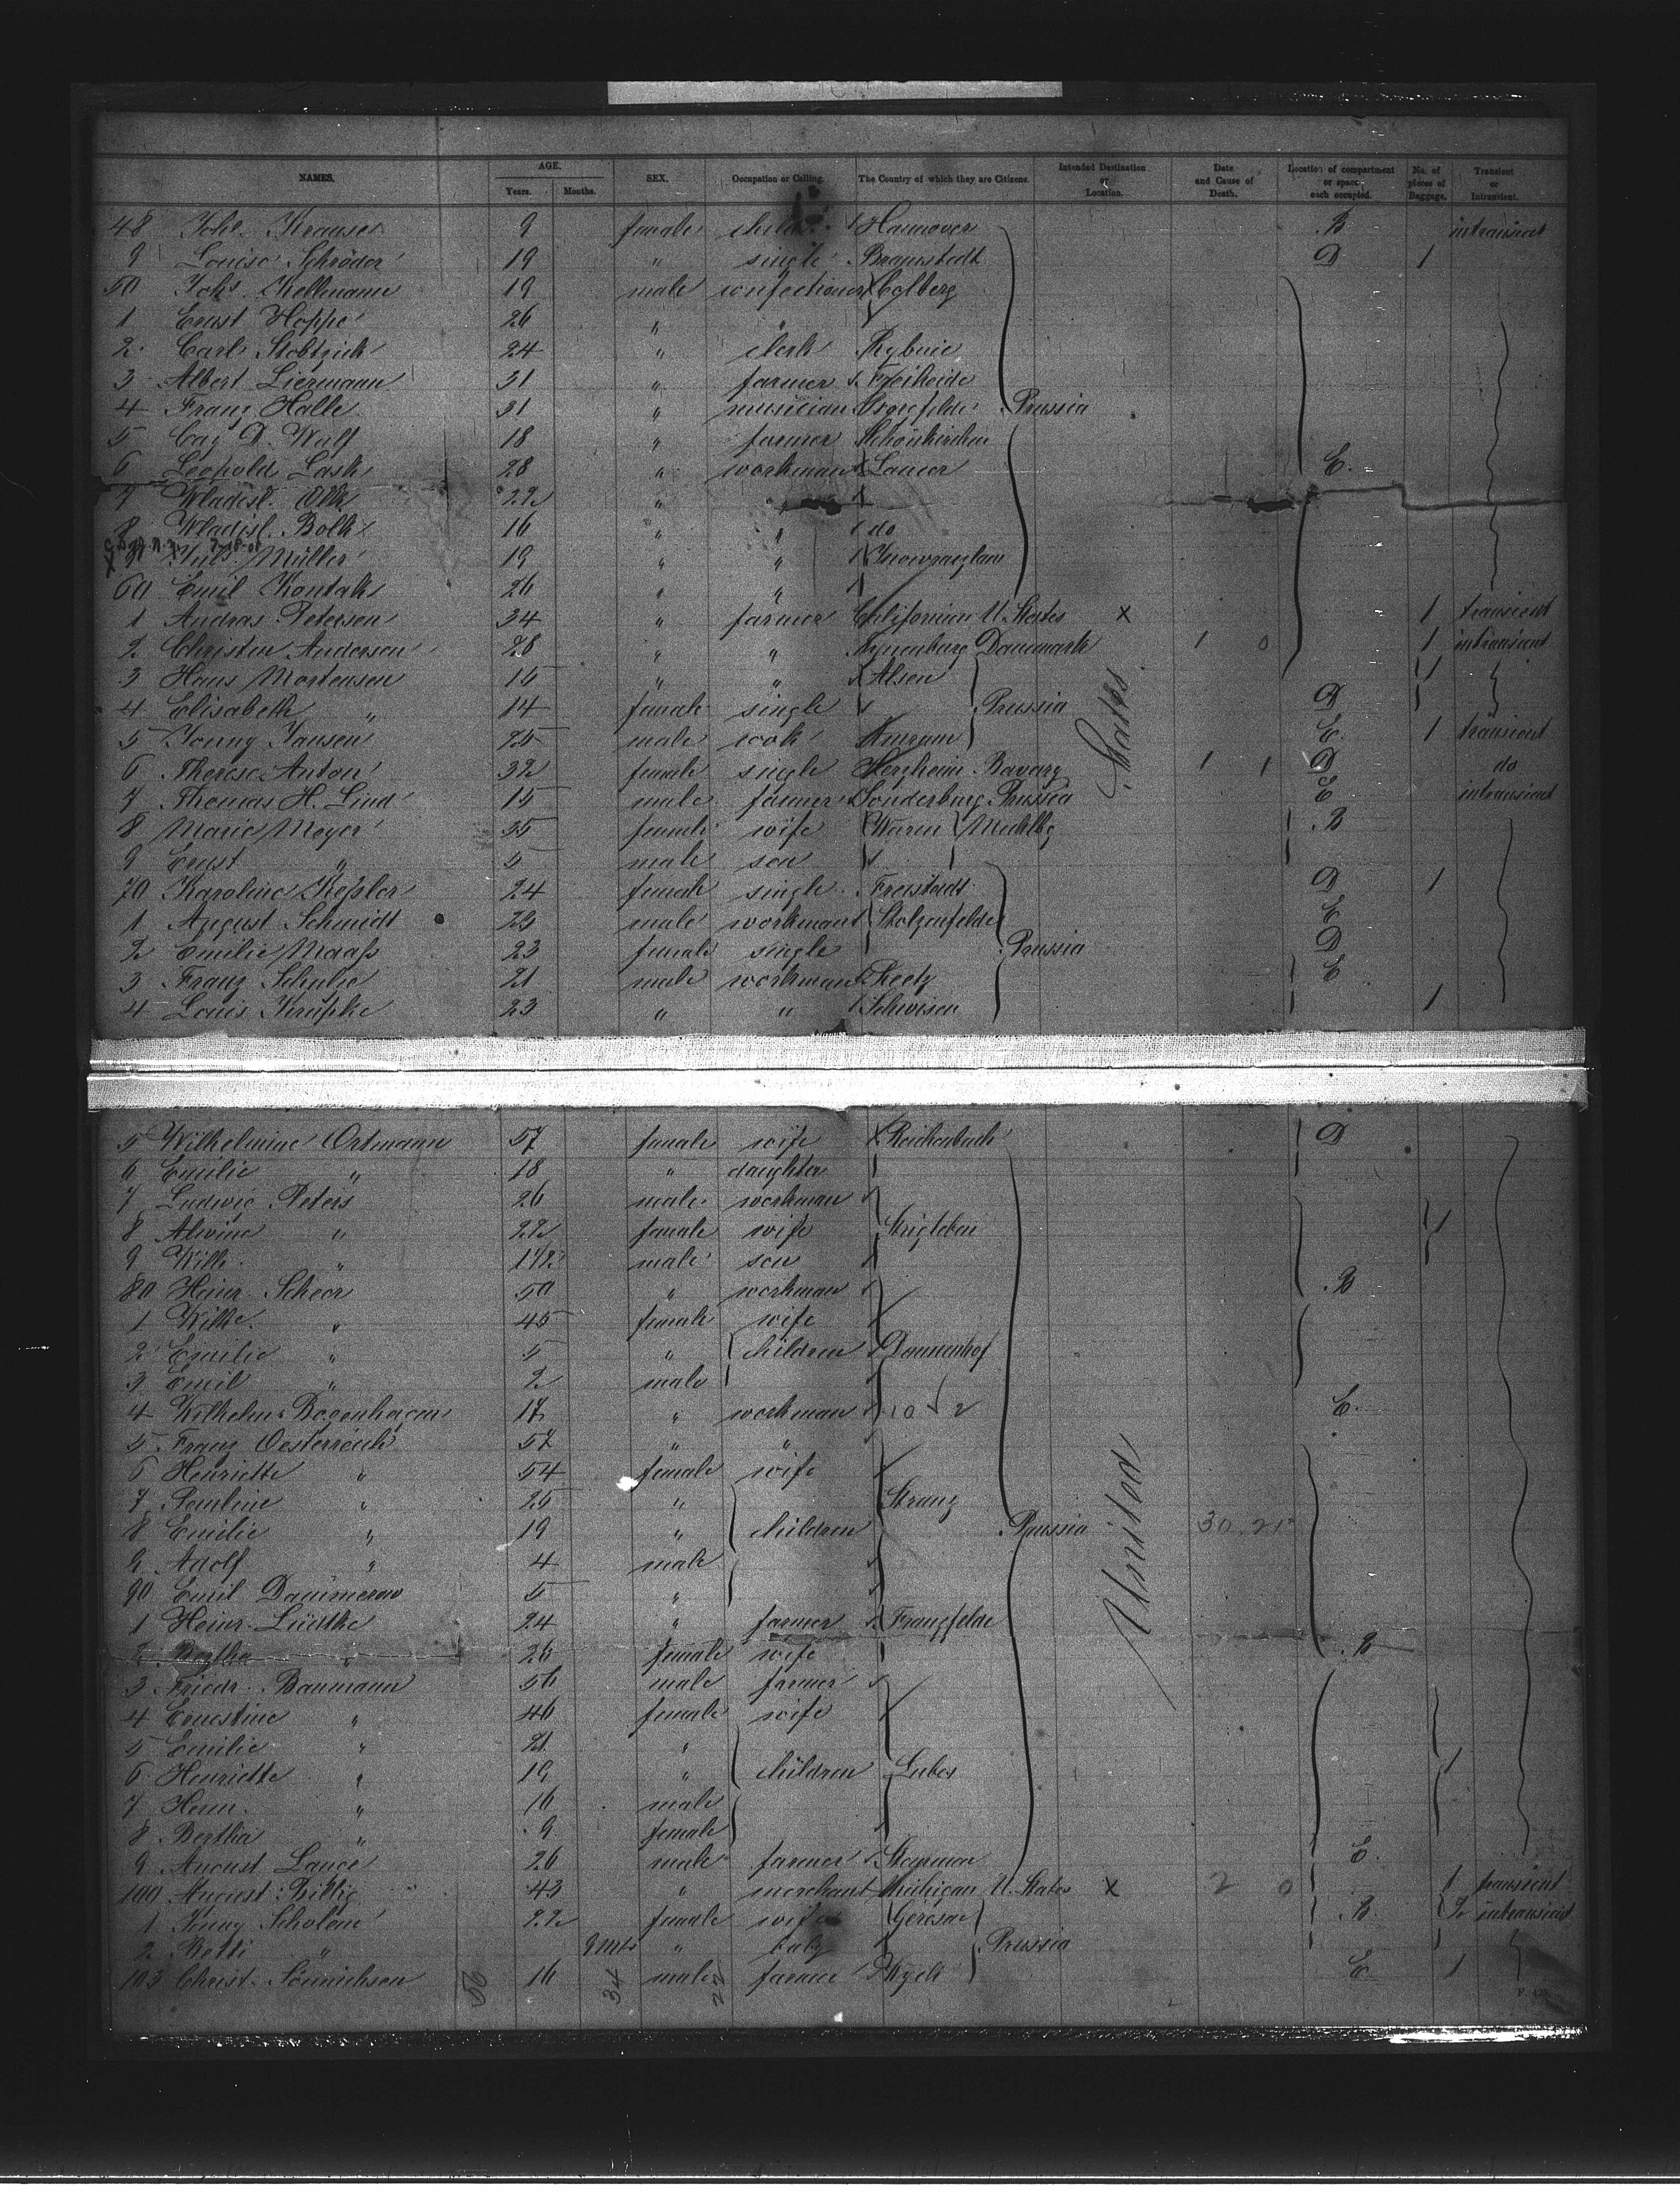 NAMES. AGE. Years. Months. SEX. Occupation or Calling. The Country of which they are Citizens. Intended Destination or Location. Date and Cause of Death. Location of compartment or space each occupied. No. of pieces of Baggage. Transient or Intransient.
48 Joh. Krause 9 female child Hannover B intransient
9 Louise Schröder 19 " single Bramstedt D 1
50 Johs. Kellmann 19 male confectioner Colberg
1 Ernst Hoppe 26 " "
2 Carl 24 " clerk
3 Albert Liermann 31 " farmer Freiheide
4 Franz Halle 31 " musician Prussia
5 Cay D. Wulf 18 " farmer Schönkirchen
6 Leopold Lask 28 " workman E.
7 Wladisl. 22 " "
8 Wladisl. Bolk 16 " " do
9 Müller 19 " " Inowrazlaw
60 Emil Kontak 26 " "
1 Andras Petersen 34 " farmer Californien U. States x 1 transient
2 Christen Andersen 28 " " Danemark 1 0 1 intransient
3 Hans Mortensen 15 " " Alsen 1
4 Elisabeth " 14 female single Prussia D
5 Jansen 25 male cook Amrum E. 1 transient
6 Therese Anton 32 female single Herxheim Bavary 1 1 D do
7 Thomas H. Lind 15 male farmer Sonderburg Prussia E intransient
8 Marie Meyer 35 female wife Waren Mecklbg B
9 Ernst " 5 male son
70 Karoline Kessler 24 female single Freistadt D 1
1 August Schmidt 23 male workman Stolzenfelde E
2 Emilie Maass 23 female single Prussia D
3 Franz Schulze 21 male workman Reetz E
4 Louis Krüpke 23 " " 1
States
5 Wilhelmine Ortmann 57 female wife Reichenbach D
6 Emilie " 18 " daughter
7 Ludwig Peters 26 male workman
8 Alwine " 22 female wife 1
9 Wilh. " 1 1/2 male son
80 Heinr. Scheer 50 " workman B
1 Wilhe. " 45 female wife
2 Emilie " 5 " children Dannenhof
3 Emil " 2 male
4 Wilhelm Bogenhagen 17 " workman 10 2 E.
5 Franz Oesterreich 57 " "
6 Henriette " 54 female wife
7 Pauline " 25 " Stranz
8 Emilie " 19 " children Prussia 30
9 Adolf " 4 male
90 Emil Dammerow 5 "
1 Heinr. Lüdtke 24 " farmer Franzfelde
2 Bertha " 26 female wife B
3 Friedr. Baumann 56 male farmer
4 Ernestine " 46 female wife
5 Emilie " 21 "
6 Henriette " 19 " children Labes 1
7 Herm. " 16 male
8 Bertha " 9 female
9 August Lange 26 male farmer E.
100 August 43 " merchant Michigan U. States x 2 0 1 transient
1 Jenny 22 female wife B. 2 intransient
2 Betti " 9 mts " baby Prussia
103 Christ. Sönnichsen 16 male farmer Wyck E 1
United
56 34 22